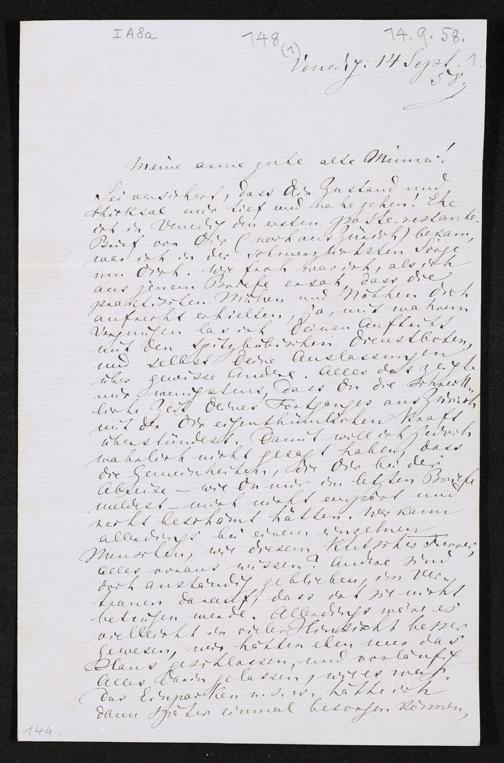 I A8a
148 (1)
14.9.58.
Venedig. 14 Sept. 1.
58.
Meine arme gute alte Minna!
Sei versichert, dass Dein Zustand und
Schicksal mir tief und nahe gehen! Ehe
ich in Venedig den ersten poste restante-
Brief von Dir (noch aus Zürich) bekam,
war ich in der schmerzlichsten Sorge
um Dich. Wie froh war ich, als ich
aus jenem Briefe ersah, dass die
praktischen Mühen und Nöthen Dich
aufrecht erhielten, ja, mit wahrem
Vergnügen las ich Deinen Auftritt
mit den spitzbübischen Dienstboten,
und selbst Deine Auslassungen
über gewisse Andere. Alles das zeigte
mir wenigstens, dass Du die schreck-
liche Zeit Deines Fortganges aus Zürich
mit der Dir eigenthümlichen Kraft
überstündest. Damit will ich jedoch
wahrlich nicht gesagt haben, dass
die Gemeinheiten, die Dir bei der
Abreise – wie Du mir im letzten Briefe
meldest – mich nicht empört und
recht beschämt hätten. Wer kann
allerdings bei einem einzelnen
Menschen, wie diesem
alles voraus wissen? Andre sind
doch anständig geblieben, im Ver-
trauen darauf, dass ich sie nicht
betrügen werde. Allerdings wäre es
vielleicht in vieler Hinsicht besser
gewesen, wir hätten eben nur das
Haus geschlossen, und vorläufig
Alles darin gelassen, wie es war.
Das Einpacken u.s.w. hätte ich
dann später einmal besorgen können,
144.